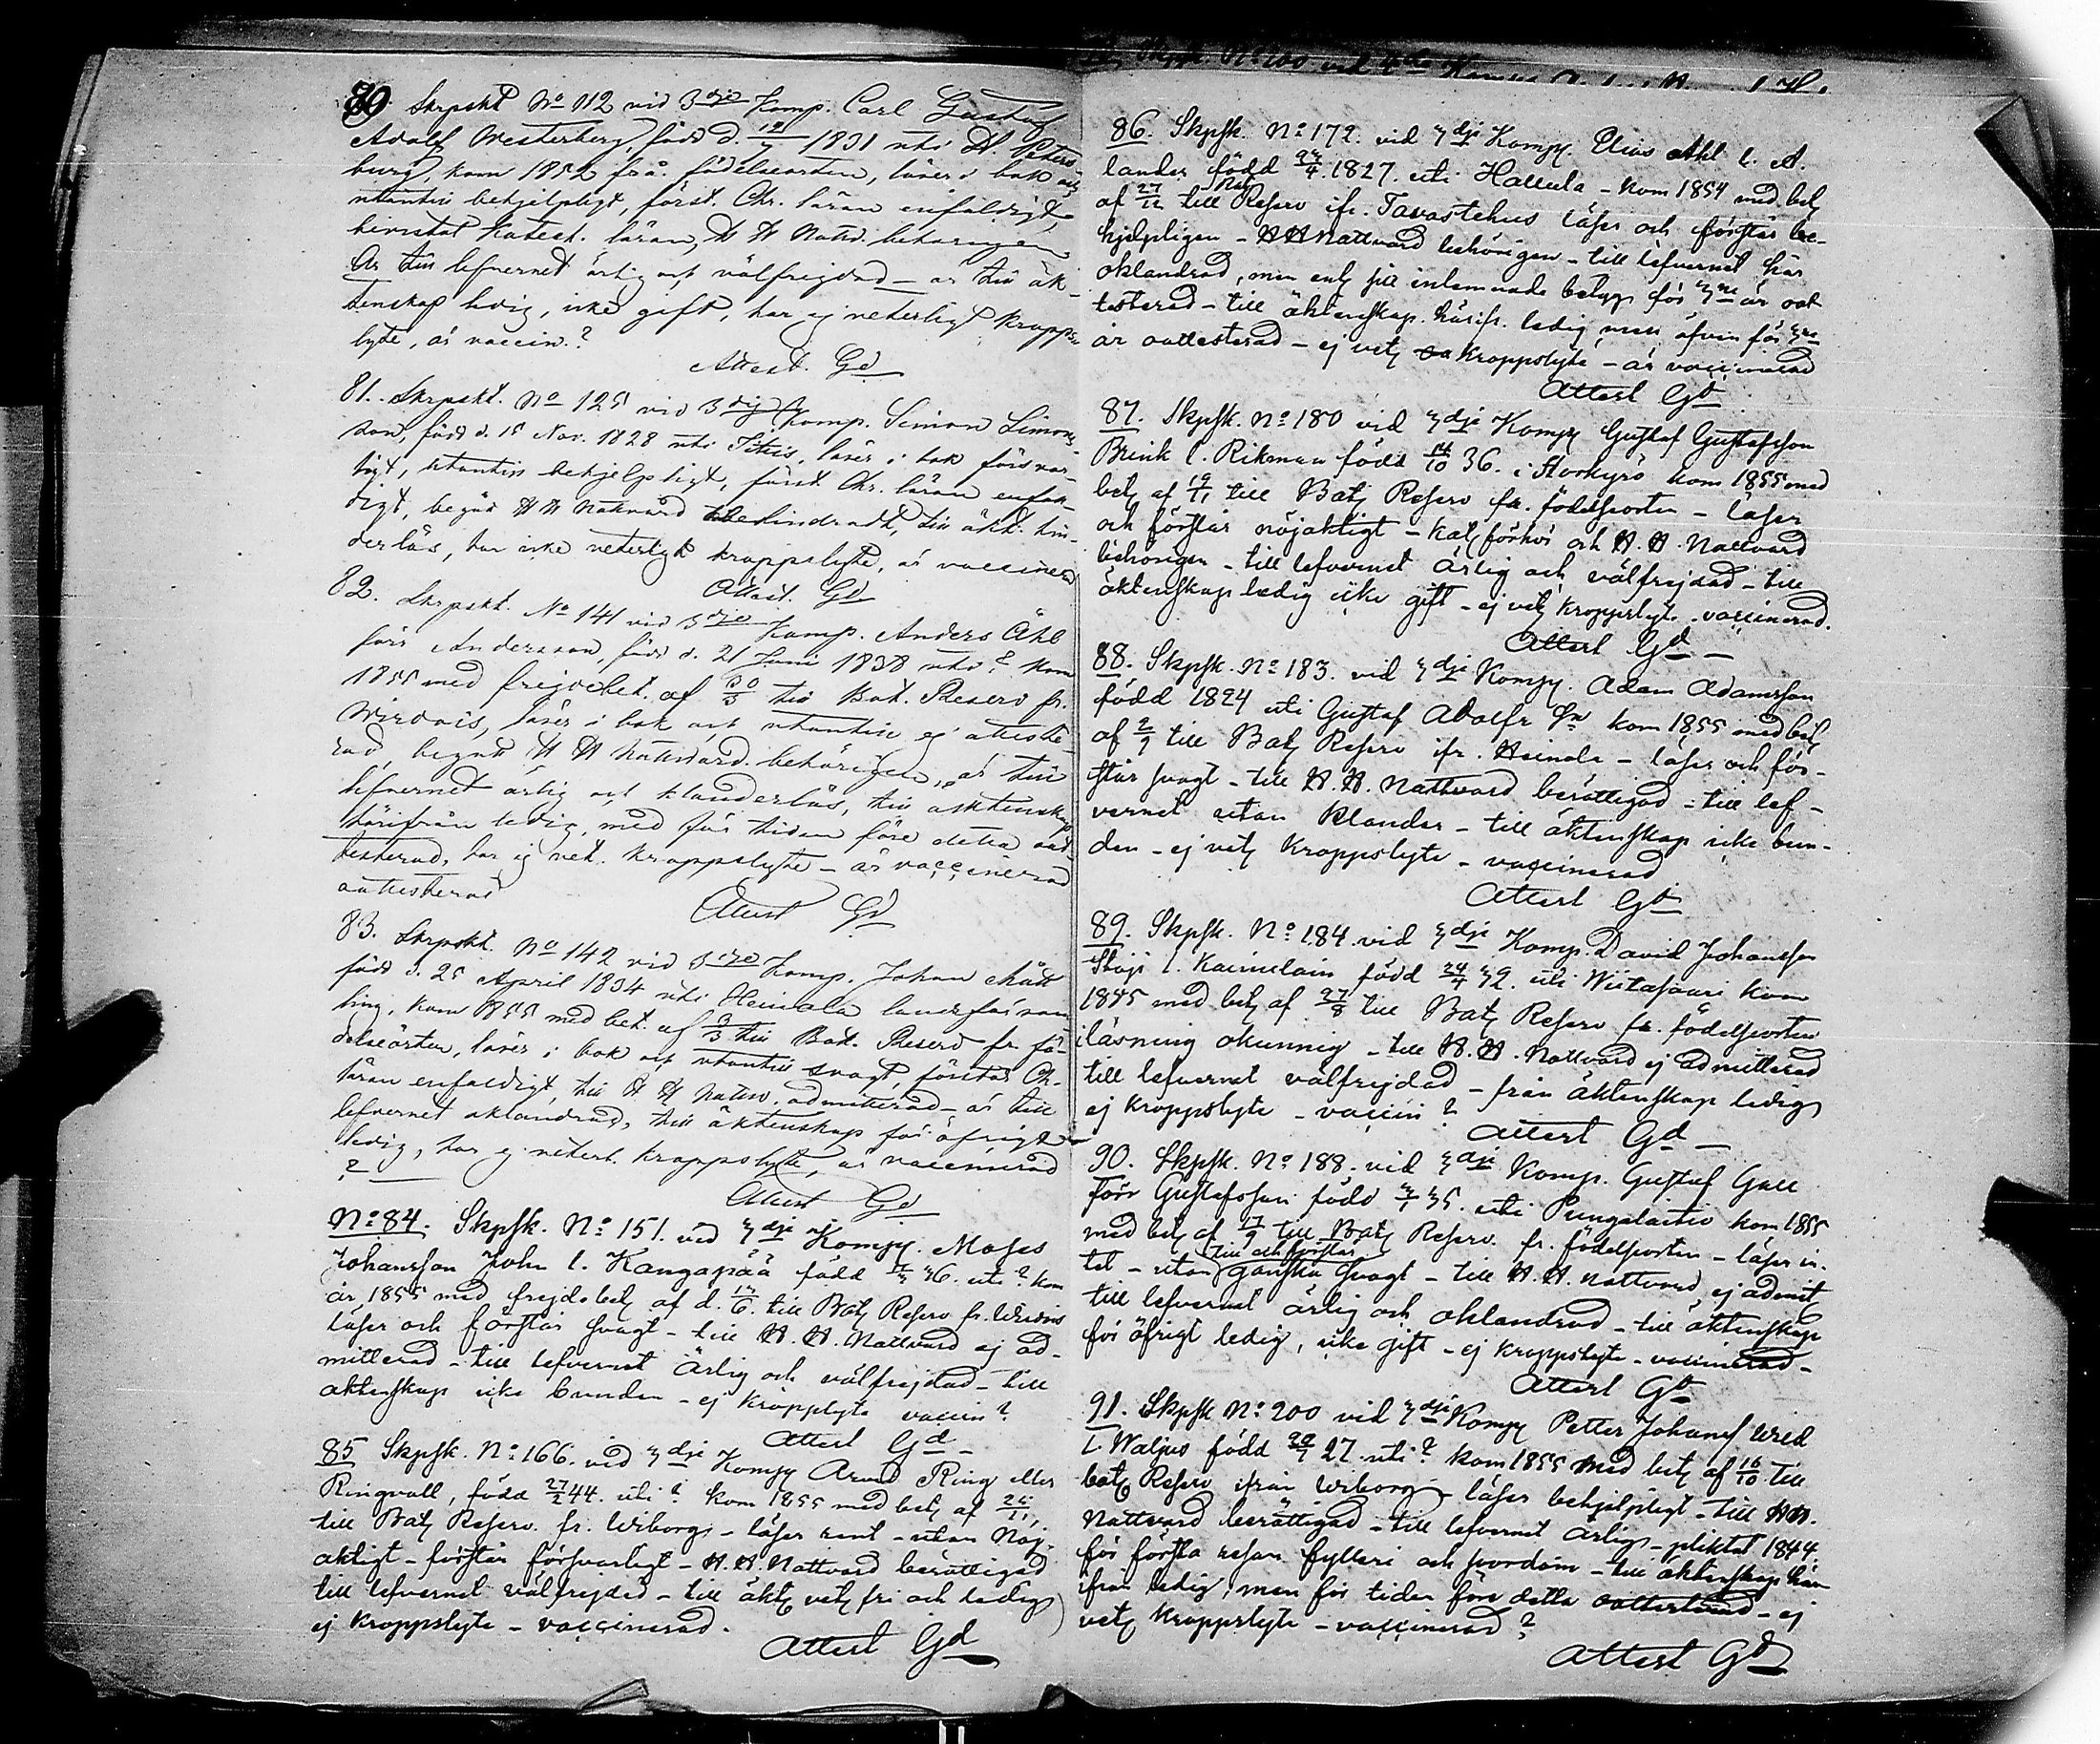 80. Skrpskt No 112 vid 3dje Komp. Carl Gustaf
Adolf Westerberg, född d. 1831 uti St. Peters
burg, kom 1852 frå. födelseorten, läser i bok och
utantill behjelpligt, först. Chr. läran enfaldigt,
bevistat Katech. läran, H H Nattv. behörigen
är till lefvernet ärlig och välfrejdad – är till äk-
tenskap ledig, icke gift, har ej veterligt kropps
lyte, är vaccin.?
Attest. Gd
81. Skrpskt. No 125 vid 3dje Komp. Simon Simons
son, född d. 15 Nov. 1828 uti läser i bok försvar
ligt, utantill behjelpligt, först. Chr. läran enfal-
digt, begår H H Nattvard obehindradt, till äkt. hin-
derlös, har icke veterligt kroppslyte, är vaccinera
Attest. Gd
82. Skrpskt. No 141 vid 3dje Komp. Anders Åhl
förr Andersson, född d. 21 Juni 1838 uti? kom
1855 med frejdebet. af 30/3 till Bat. Reserv fr.
Wirdois, läser i bok och utantill ej atteste-
rad, begått H H Nattvard. behörigen, är till
lefvernet ärlig och klanderlös, till äktenskap
härifrån ledig, med för tiden före detta oat-
testerad, har ej vet. kroppslyte – är vaccinerad
oattesterad
Attest Gd
83. Skrpskt. No 142 vid 3dje Komp. Johan Mått
född d. 25 April 1834 uti Heinola landsförsam
ling, kom 1855 med bet. af 3/3 till Bat. Reserv fr. fö-
delseorten, läser i bok och utantill svagt, förstår Ch.
läran enfaldigt, till H H Nattv. admitterad – är till
lefvernet oklandrad, till äktenskap för öfrigt
ledig, har ej veterl. kroppslyte, är vaccinerad
?
Attest Gd
No 84. Skpsk. No 151. vid 3dje Kompy. Moses
Johansson John l. Kangapää född 36. uti? kom
år 1855 med frejdebetg af d. till Batj Reserv fr. Wirdois
läser och förstår svagt – till H. H. Nattvard ej ad-
mitterad – till lefvernet ärlig och välfrejdad – till
äktenskap icke bunden – ej kropplyte vaccin?
Attest Gd –
85 Skpsk. No 166. vid 3dje Kompy Arvid Ring eller
Ringvall, född 27/2 44. uti? kom 1855 med betg af
till Batj Reserv. fr. Wiborgs – läser rent – utan Nöj-
aktigt – förstår försvarligt – H. H. Nattvard berättigad
till lefvernet välfrejdad – till äktg vetg fri och ledig
ej kroppslyte – vaccinerad.
Attest Gd
86. Skpsk. No 172. vid 3dje Kompy. Elias Ahl l. A.
lander född 24/4. 1827. uti Hallula – kom 1854 med betg
af 27/12 till Batj Reserv ifr. Tavastehus läser och förstår be-
hjelpligen – H H Nattvard behörigen – till lefvernet här
oklandrad, men enl. sitt inlemnade betyg för 3ne år oat
testerad – till äktenskap. härifr. ledig men äfven för 3ne
år oattesterad – ej vetg kroppslyte – är vaccinerad
Attest Gd
87. Skpsk. No 180 vid 3dje Kompy Gustaf Gustafsson
Brink l. Rikman född 14/10 36. i Storkyrö kom 1855 med
betg af till Batj Reserv fr. födelseorten – läser
och förstår nöjaktigt – Katg förhör och H. H. Nattvard
behörigen – till lefvernet ärlig och välfrejdad – till
äktenskap ledig icke gift – ej vetg kroppslyte – vaccinerad.
Attest Gd –
88. Skpsk. No 183. vid 3dje Kompy. Adam Adamsson
född 1824 uti Gustaf Adolfs Sn kom 1855 med betg
af 2/9 till Batj Reserv ifr. Heinola – läser och för-
står svagt – till H. H. Nattvard berättigad – till lef-
vernet utan klander – till äktenskap icke bun-
den – ej vetg kroppslyte – vaccinerad
Attest Gd
89. Skpsk. No 184 vid 3dje Komp. David Johansson
Stöjs l. född 24/4 32. uti Wiitasaari kom
1855 med betg af 27/8 till Batj Reserv fr. födelseorten
i läsning okunnig – till H. H. Nattvard ej admitterad
till lefvernet välfrejdad – från äktenskap ledig
ej kroppslyte – vaccin?
Attest Gd –
90. Skpsk. No 188. vid 3dje Komp. Gustaf Gall
förr Gustafsson född 35. uti Pungalaitio kom 1855
med betg af till Batj Reserv. fr. födelseorten – läser in-
till och förstår
tet – utan ganska svagt – till H. H. Nattvard ej admit
till lefvernet ärlig och oklandrad – till äktenskap
för öfrigt ledig, icke gift – ej kroppslyte – vaccinerad –
Attest Gd
91. Skpsk No 200 vid 3dje Kompy Petter Johans Wred
l. Waljus född 27 uti? kom 1855 med betg af 16/10 till
batg Reserv ifrån Wiborg – läser behjelpligt – till H H.
Nattvard berättigad – till lefvernet ärlig – pliktat 1844
för första resan fylleri och svordom – till äktenskap här
ifrån ledig, men för tiden före detta oattesterad – ej
vetg kroppslyte – vaccinerad?
Attest Gd